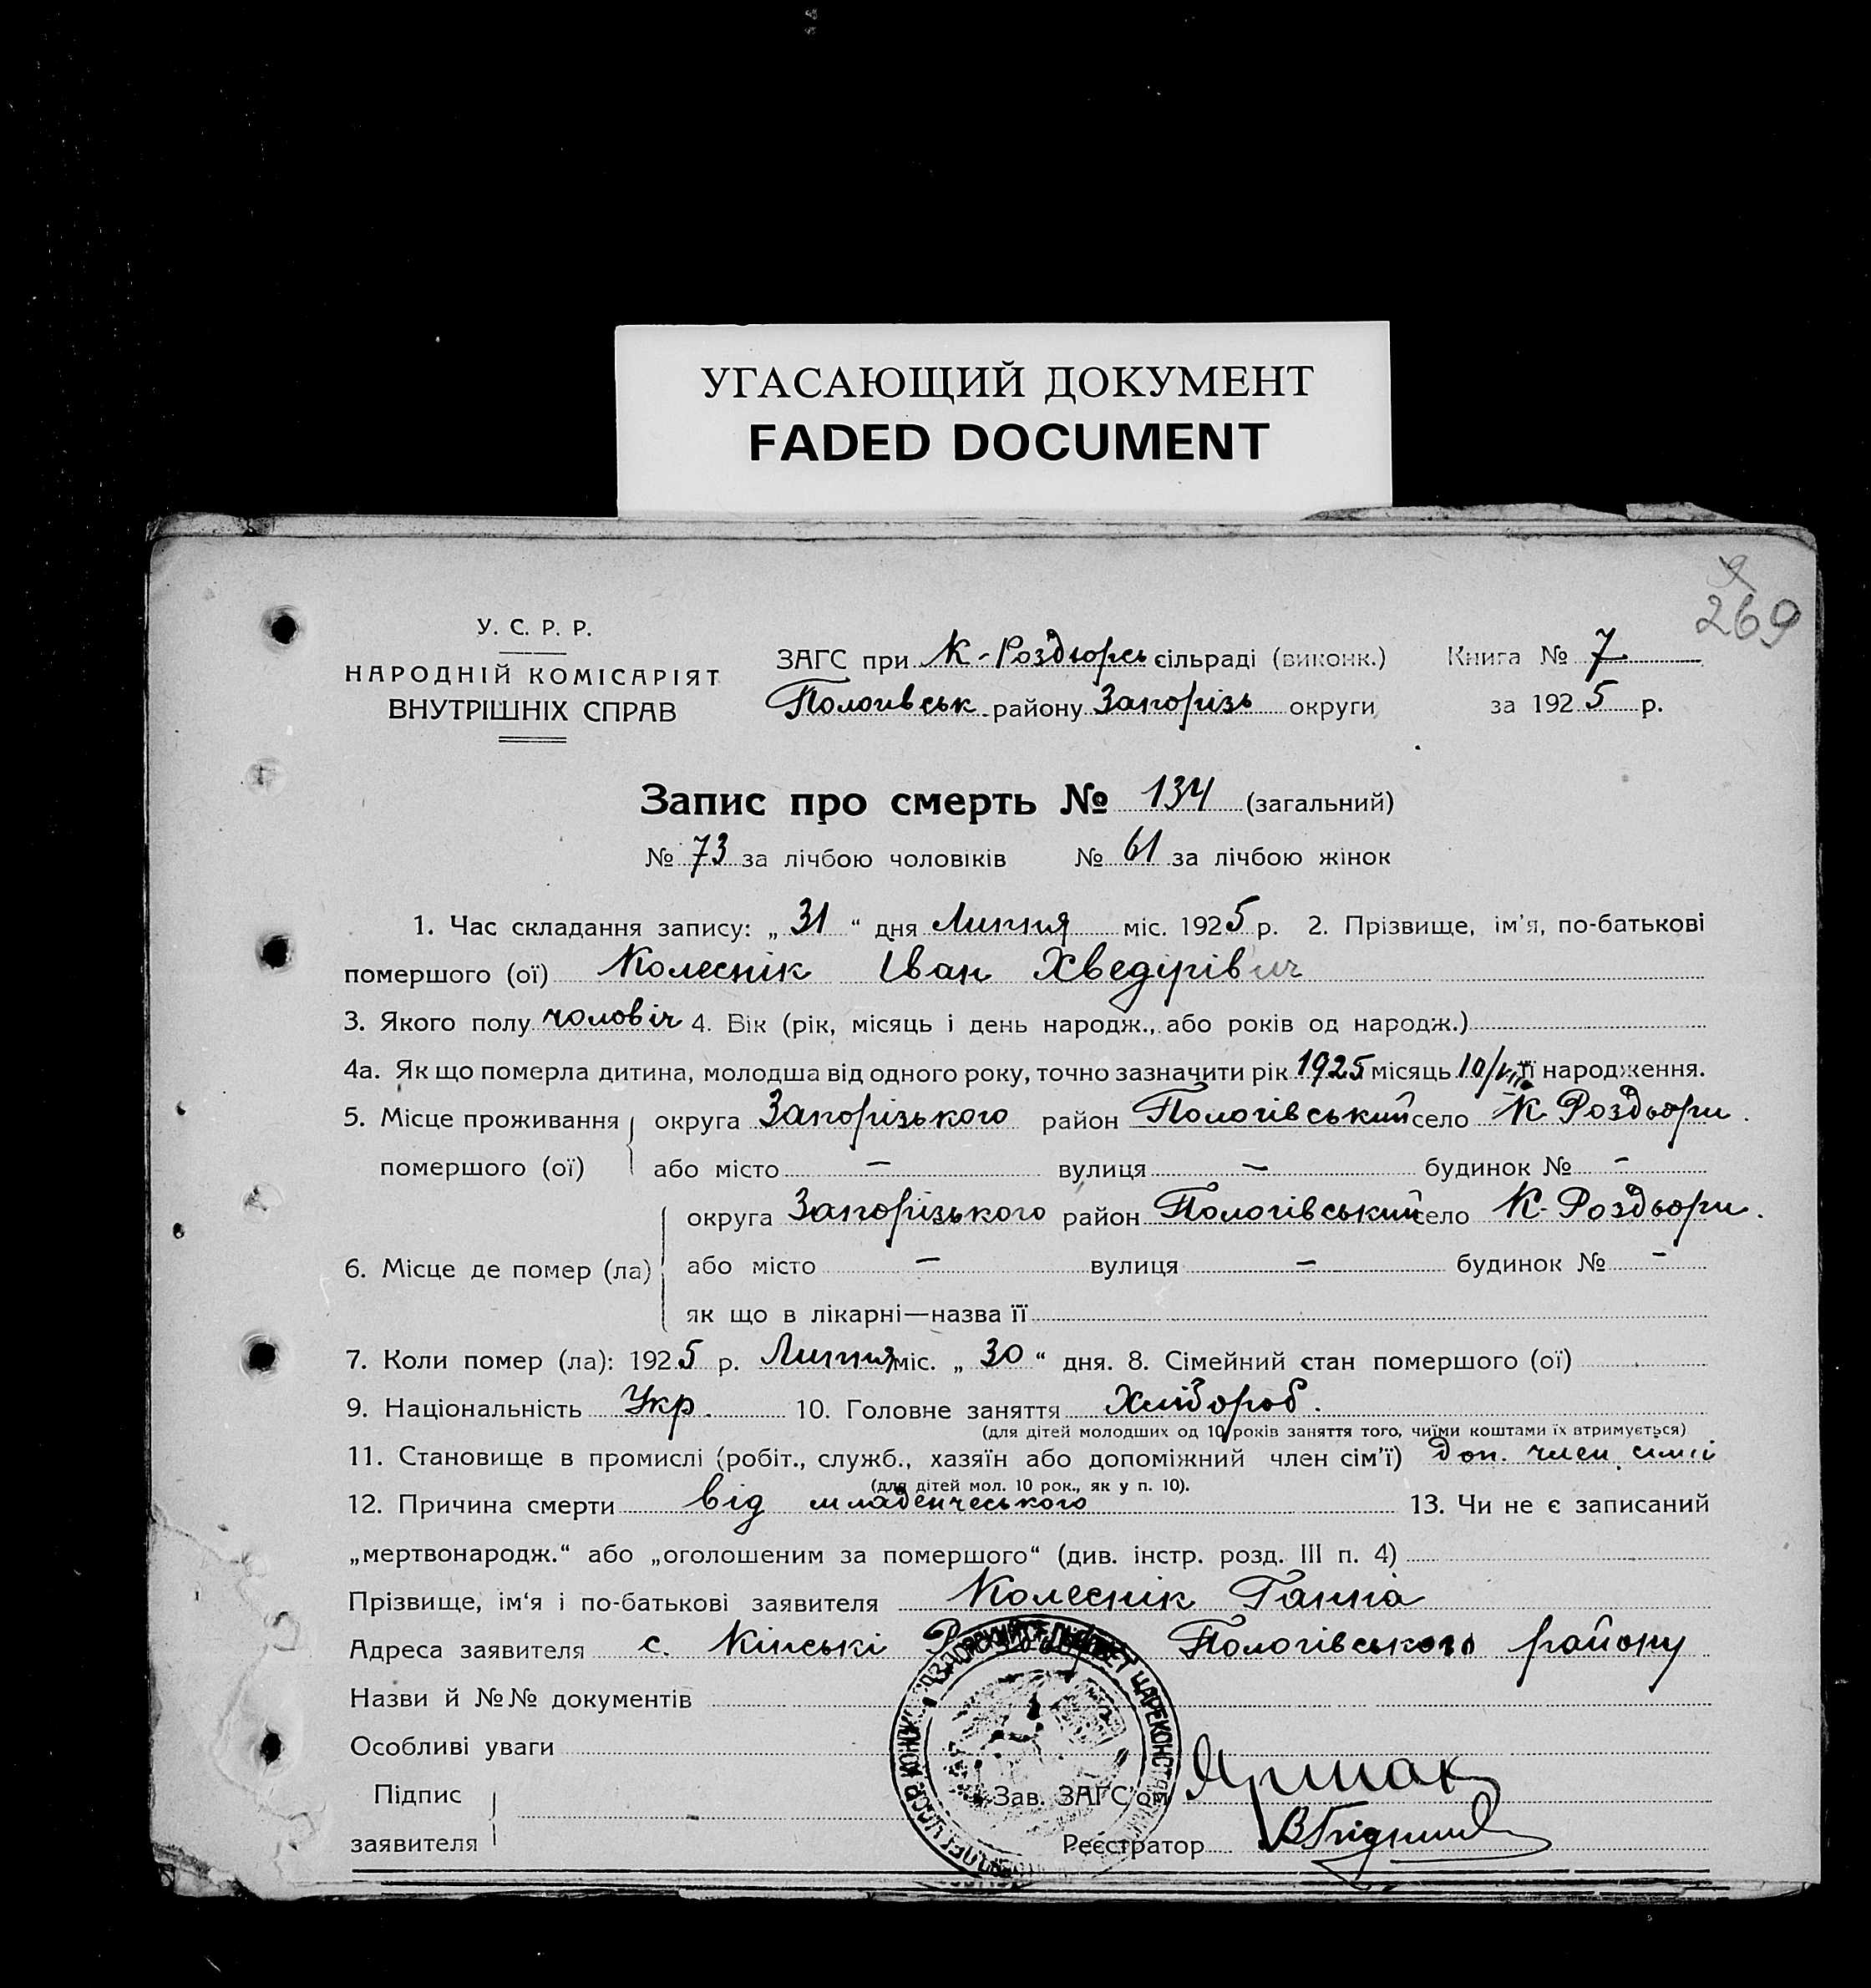 УГАСАЮЩИЙ ДОКУМЕНТ
FADED DOCUMENT
269
У. С. Р. Р.
НАРОДНІЙ КОМІСАРІЯТ
ВНУТРІШНІХ СПРАВ
ЗАГС при К-Роздорсь сільраді (виконк.) Книга № 7
Пологівськ району Запорізь округи за 1925 р.
Запис про смерть № 134 (загальний)
№ 73 за лічбою чоловіків № 61 за лічбою жінок
1. Час складання запису: „31“ дня Липня міс. 1925 р. 2. Прізвище, ім'я, по-батькові
помершого (ої) Колеснік Іван Хведірівич
3. Якого полу чоловіч 4. Вік (рік, місяць і день народж., або років од народж.)
4а. Як що померла дитина, молодша від одного року, точно зазначити рік 1925 місяць 10/VII її народження.
5. Місце проживання округа Запорізького район Пологівський село К. Роздьори.
помершого (ої) або місто — вулиця — будинок № -
округа Запорізького район Пологівський село К-Роздьори.
6. Місце де помер (ла) або місто — вулиця — будинок № -
як що в лікарні—назва її
7. Коли помер (ла): 1925 р. Липня міс. „30“ дня. 8. Сімейний стан помершого (ої)
9. Національність Укр. 10. Головне заняття Хлібороб.
(для дітей молодших од 10 років заняття того, чиїми коштами їх втримується)
11. Становище в промислі (робіт., служб., хазяїн або допоміжний член сім'ї) Доп. член сімїї
(для дітей мол. 10 рок., як у п. 10).
12. Причина смерти від младенческого 13. Чи не є записаний
„мертвонародж.“ або „оголошеним за помершого“ (див. інстр. розд. III п. 4)
Прізвище, ім'я і по-батькові заявителя Колеснік Ганна
Адреса заявителя с. Кінські Пологівського району
Назви й №№ документів
Особливі уваги
Підпис
заявителя
Зав. ЗАГС'ом
Реєстратор